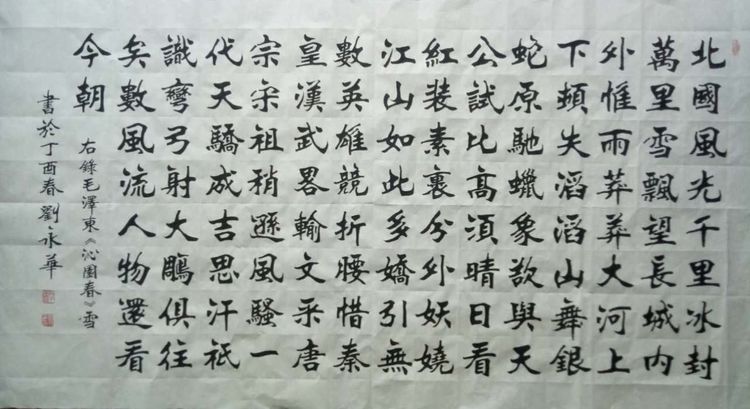 北國風光千里冰封
萬里雪飄望長城内
外惟雨莽莽大河上
下頓失滔滔山舞銀
蛇原馳蠟象欲與天
公試比高須晴日看
紅装素裹分外妖嬈
江山如此多嬌引無
數英雄競折腰惜秦
皇漢武畧輸文采唐
宗宋祖稍遜風騷一
代天驕成吉思汗祇
識彎弓射大鵰俱往
矣數風流人物還看
今朝
右錄毛澤東《沁園春》雪
書於丁酉春劉永華